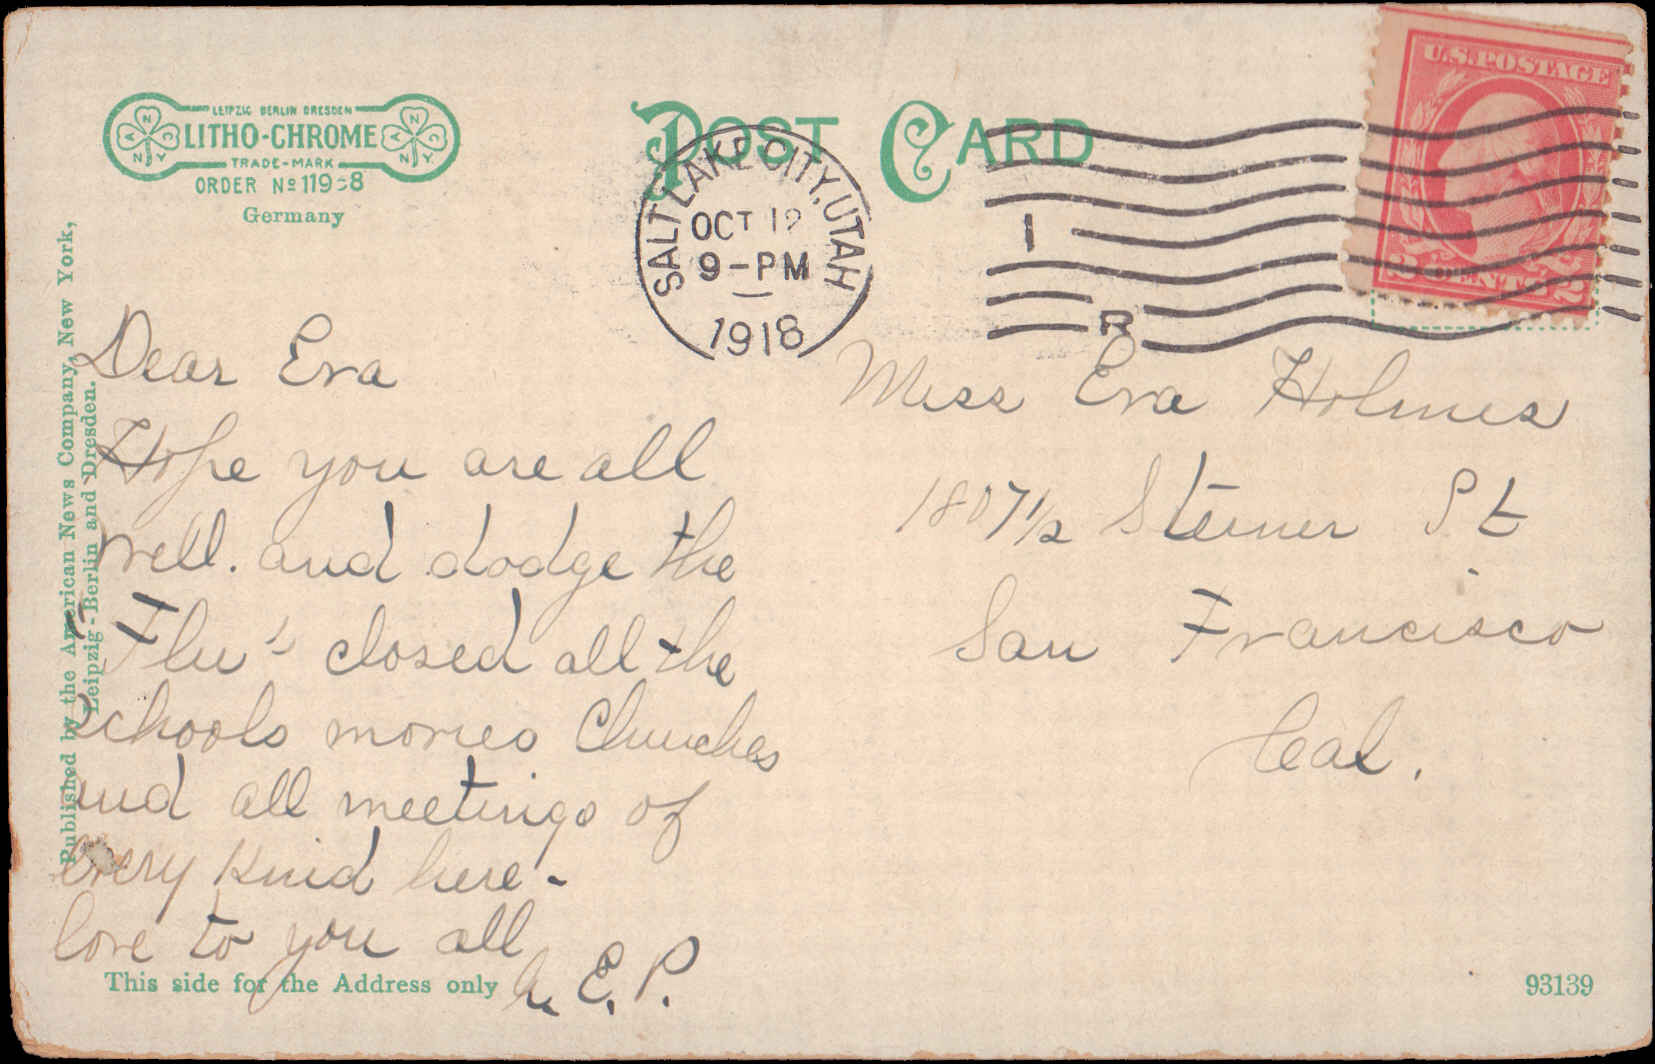 LEIPZIG BERLIN DRESDEN
LITHO-CHROME
TRADE-MARK
ORDER Nº 11958
Germany
POST CARD
U.S.POSTAGE
2 CENTS 2
SALT LAKE CITY, UTAH
OCT 12
9-PM
1918
1
R
Published by the American News Company, New York,
Leipzig-Berlin and Dresden.
Dear Eva
Hope you are all
well. and dodge the
"Flu" closed all the
schools movies Churches
and all meetings of
every kind here-
love to you all
E. P.
Miss Eva Holmes
1807 1/2 Steiner St
San Francisco
Cal.
This side for the Address only
93139